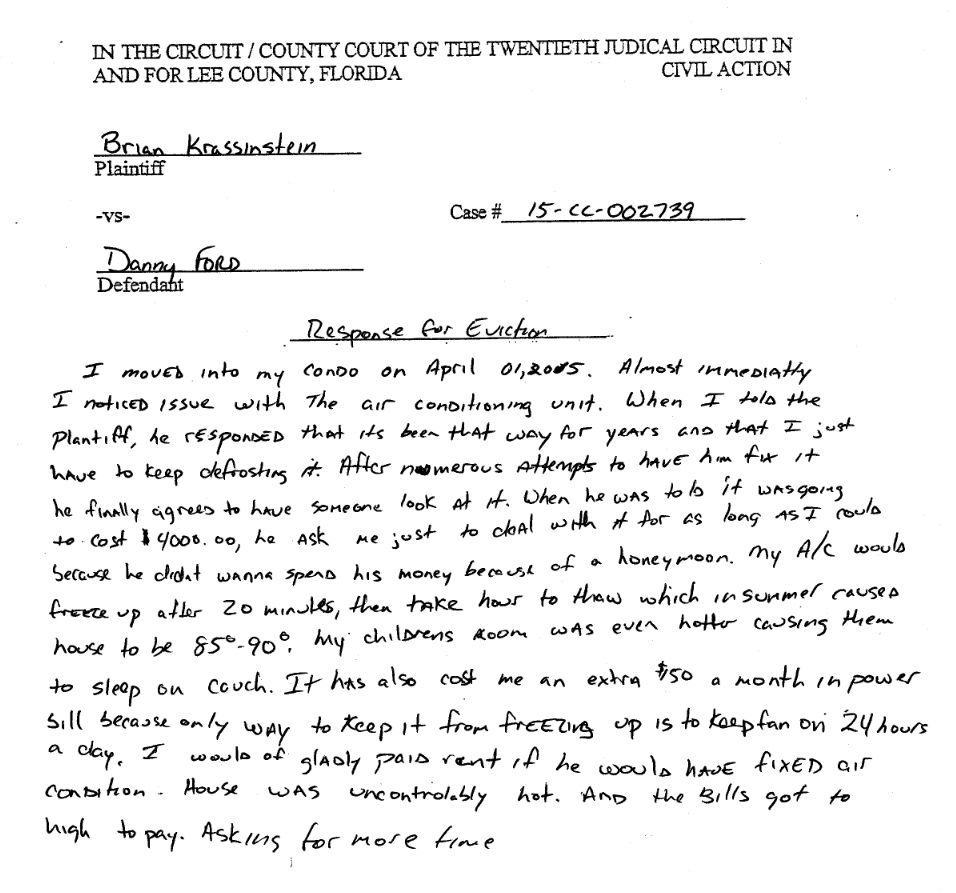 IN THE CIRCUIT / COUNTY COURT OF THE TWENTIETH JUDICAL CIRCUIT IN
AND FOR LEE COUNTY, FLORIDA CIVIL ACTION
Brian Krassinstein
Plaintiff
-vs- Case # 15-CC-002739
Danny FORD
Defendant
Response for Eviction
I moved into my condo on April 01, 2015. Almost immediatly
I noticed issue with The air conditioning unit. When I told the
Plantiff, he responded that its been that way for years and that I just
have to keep defrosting it. After numerous attempts to have him fix it
he finally agrees to have someone look at it. When he was told it was going
to cost $4000.00, he ask me just to deal with it for as long as I could
because he didnt wanna spend his money because of a honeymoon. My A/C would
freeze up after 20 minutes, then take hour to thaw which in summer caused
house to be 85°-90°. My childrens room was even hotter causing them
to sleep on couch. It has also cost me an extra $50 a month in power
bill because only way to keep it from freezing up is to keep fan on 24 hours
a day. I would of gladly paid rent if he would have fixed air
condition. House was uncontrolably hot. And the bills got to
high to pay. Asking for more time